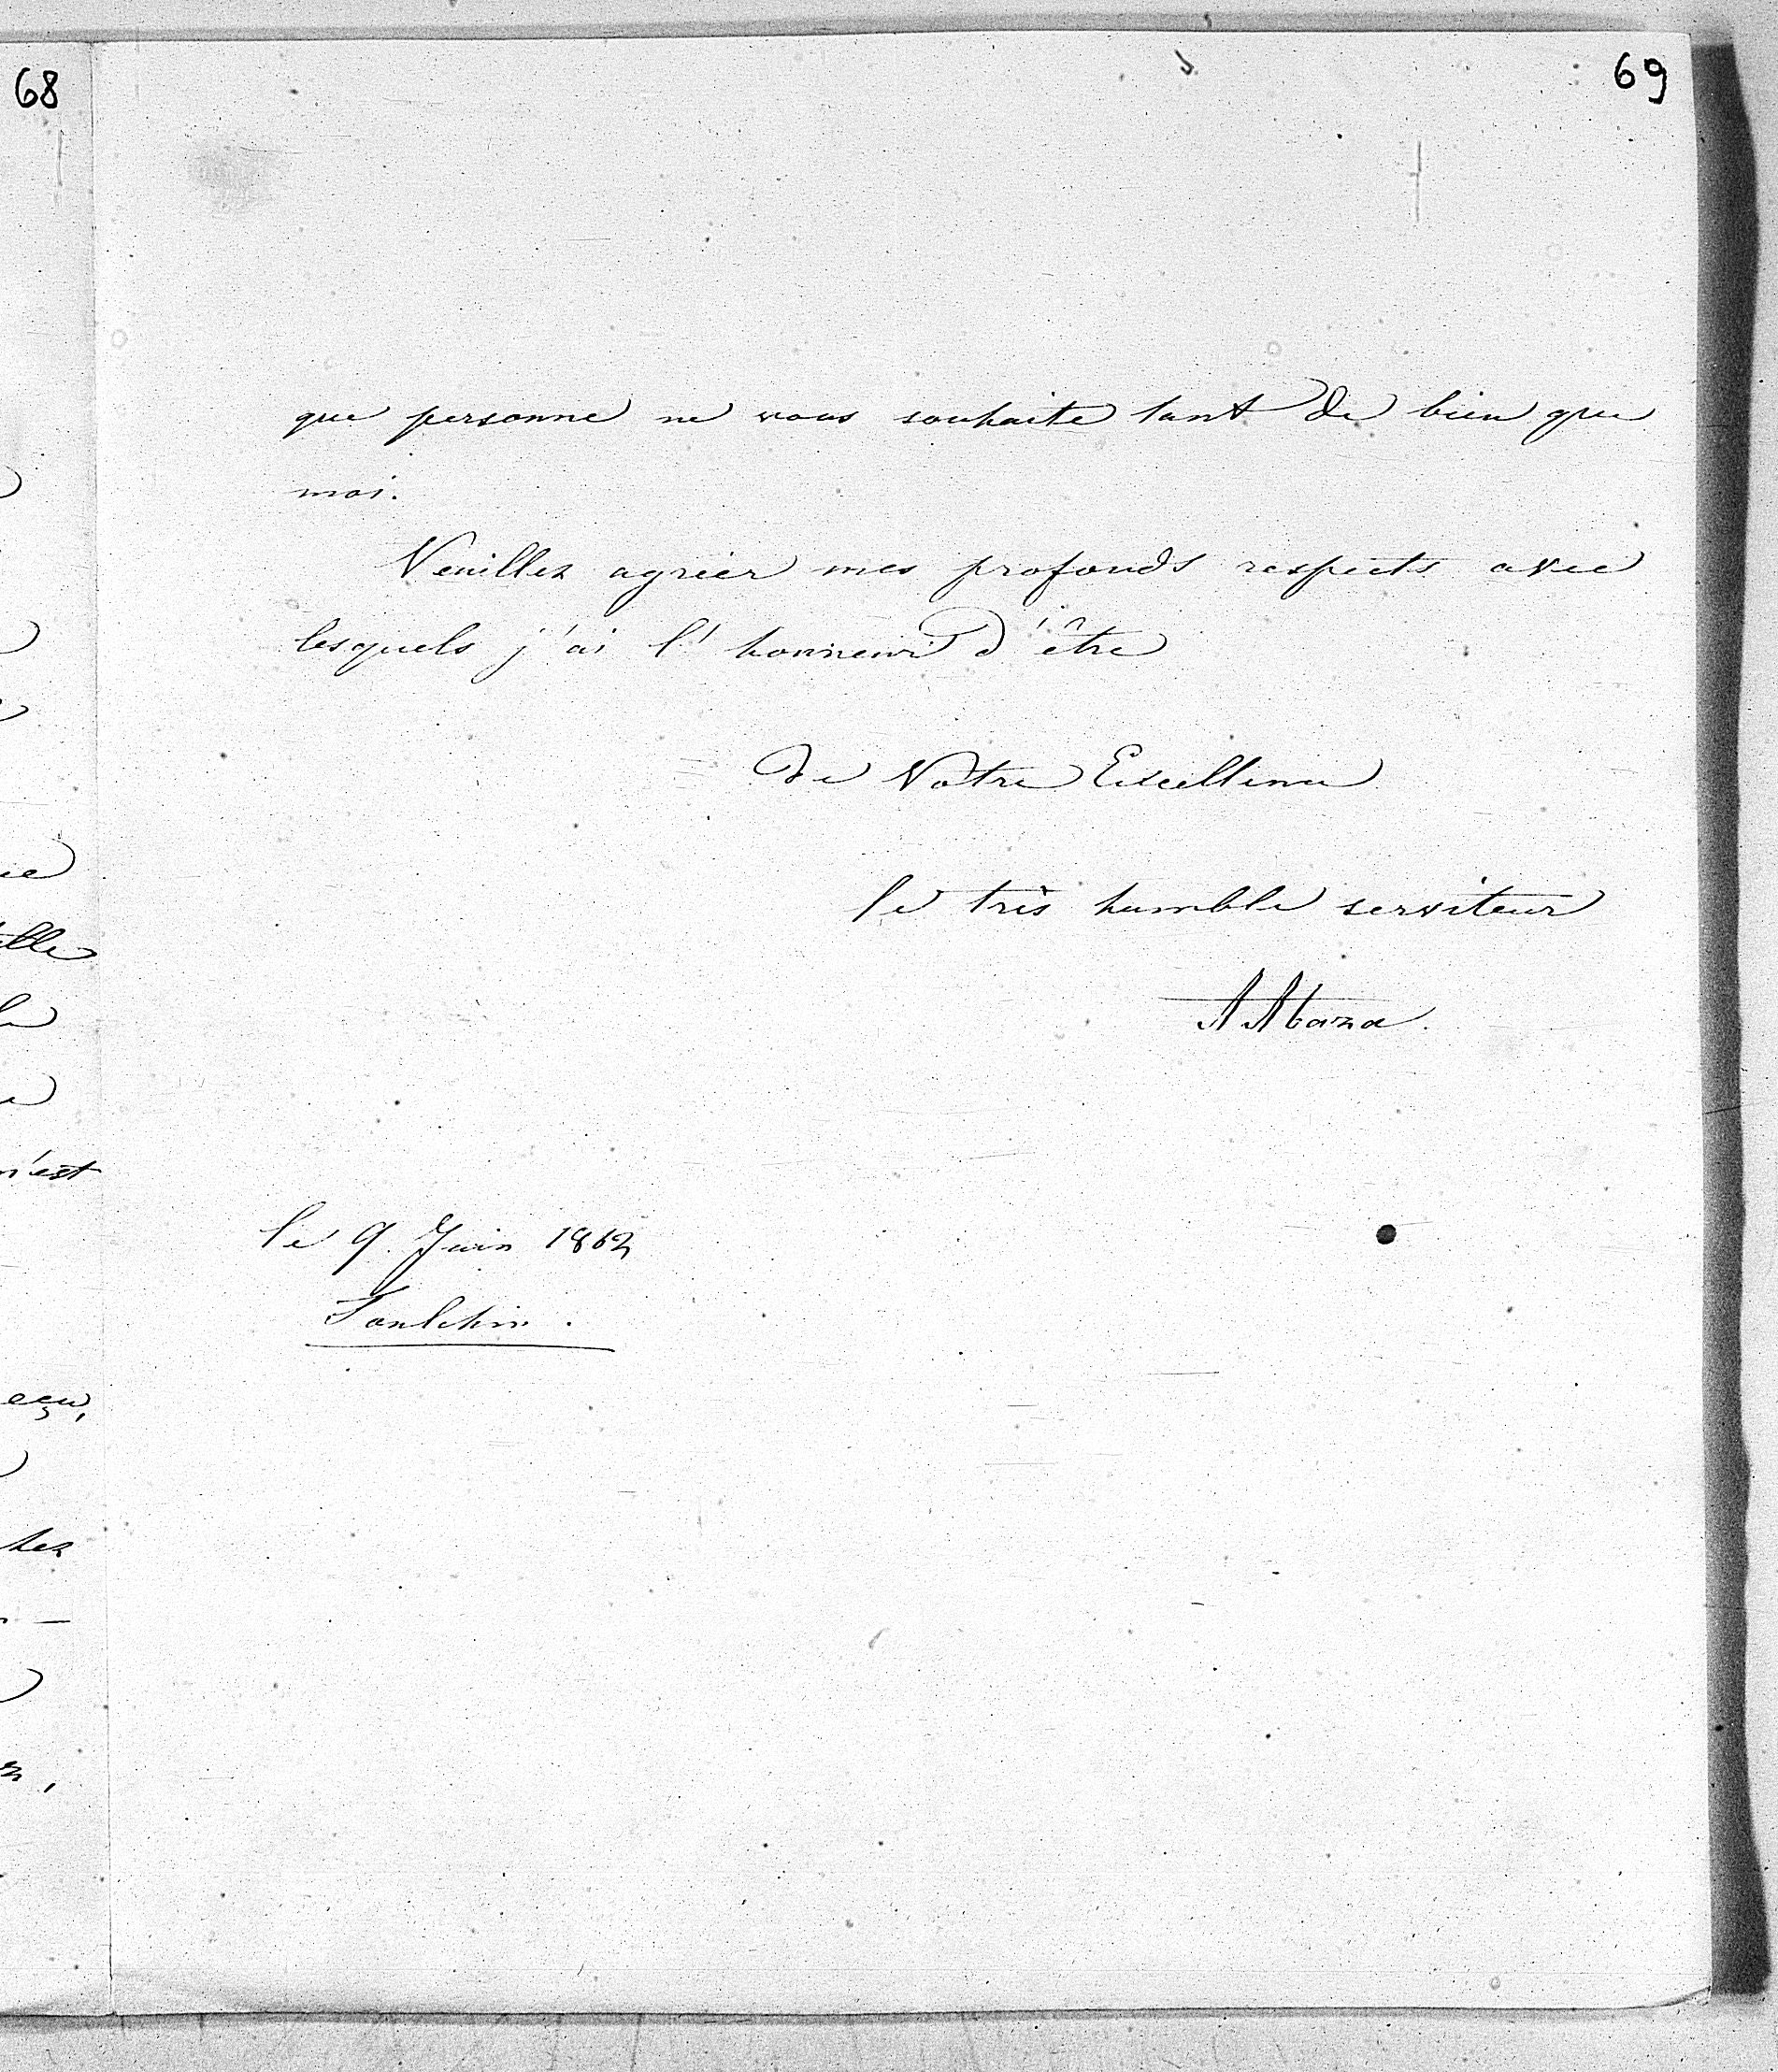 68
69
que personne ne vous souhaite tant de bien que
moi.
Veuillez agréer mes profonds respects avec
lesquels j'ai l'honneur d'être
de Votre Excellence
le très humble serviteur
A Abaza.
le 9. Juin 1862
Toultchin.
n'est